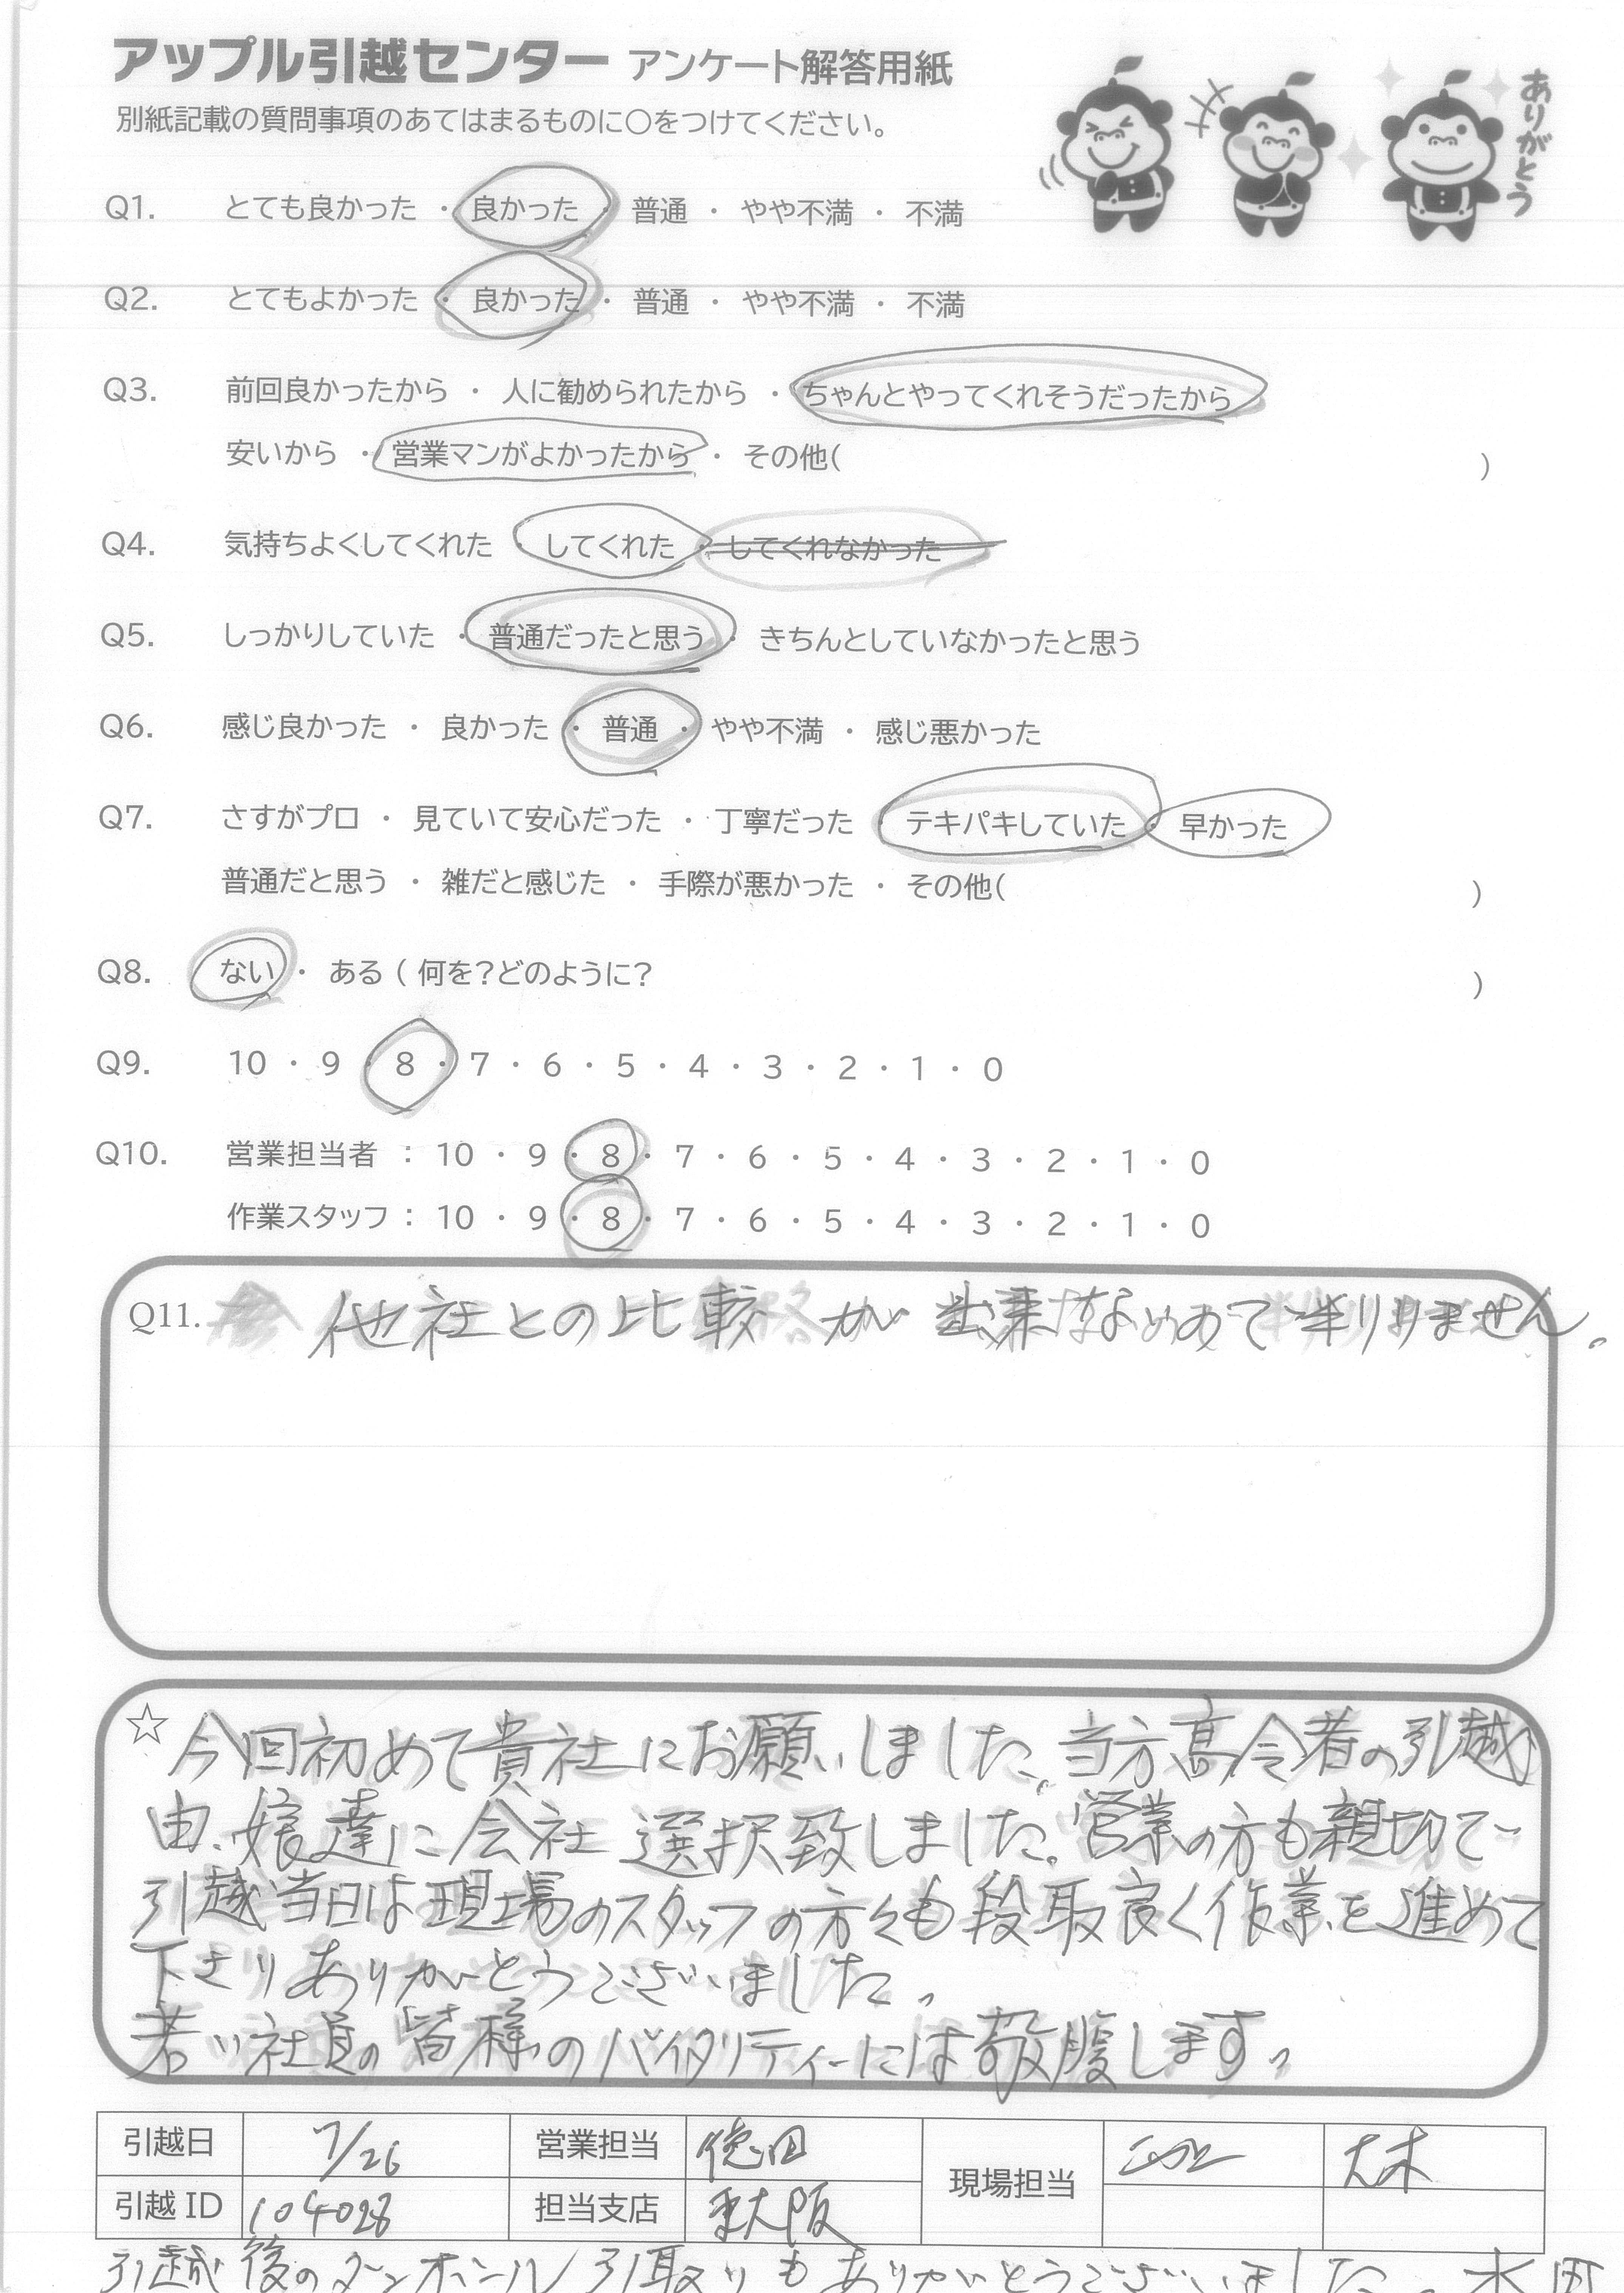 アップル引越センター アンケート解答用紙
別紙記載の質問事項のあてはまるものに〇をつけてください。
ありがとう
Q1. とても良かった ・ 良かった ・ 普通 ・ やや不満 ・ 不満
Q2. とてもよかった ・ 良かった ・ 普通 ・ やや不満 ・ 不満
Q3. 前回良かったから ・ 人に勧められたから ・ ちゃんとやってくれそうだったから
安いから ・ 営業マンがよかったから ・ その他( )
Q4. 気持ちよくしてくれた ・ してくれた ・ してくれなかった
Q5. しっかりしていた ・ 普通だったと思う ・ きちんとしていなかったと思う
Q6. 感じ良かった ・ 良かった ・ 普通 ・ やや不満 ・ 感じ悪かった
Q7. さすがプロ ・ 見ていて安心だった ・ 丁寧だった ・ テキパキしていた ・ 早かった
普通だと思う ・ 雑だと感じた ・ 手際が悪かった ・ その他( )
Q8. ない ・ ある ( 何を?どのように? )
Q9. 10 ・ 9 ・ 8 ・ 7 ・ 6 ・ 5 ・ 4 ・ 3 ・ 2 ・ 1 ・ 0
Q10. 営業担当者 : 10 ・ 9 ・ 8 ・ 7 ・ 6 ・ 5 ・ 4 ・ 3 ・ 2 ・ 1 ・ 0
作業スタッフ : 10 ・ 9 ・ 8 ・ 7 ・ 6 ・ 5 ・ 4 ・ 3 ・ 2 ・ 1 ・ 0
Q11. 他社との比較が出来なめので判りません。
☆ 今回初めて貴社にお願いしました。当方高令者の引越
由、娘達に会社選択致しました。営業の方も親切で
引越当日は現場のスタッフの方々も段取良く作業を進めて
下さりありがとうございました。
若い社員の皆様のバイタリティーには敬腹します。
引越日 7/26 営業担当 徳田 現場担当 大木
引越 ID 104028 担当支店 東大阪
引越後のダンボール引取りもありがとうございました。